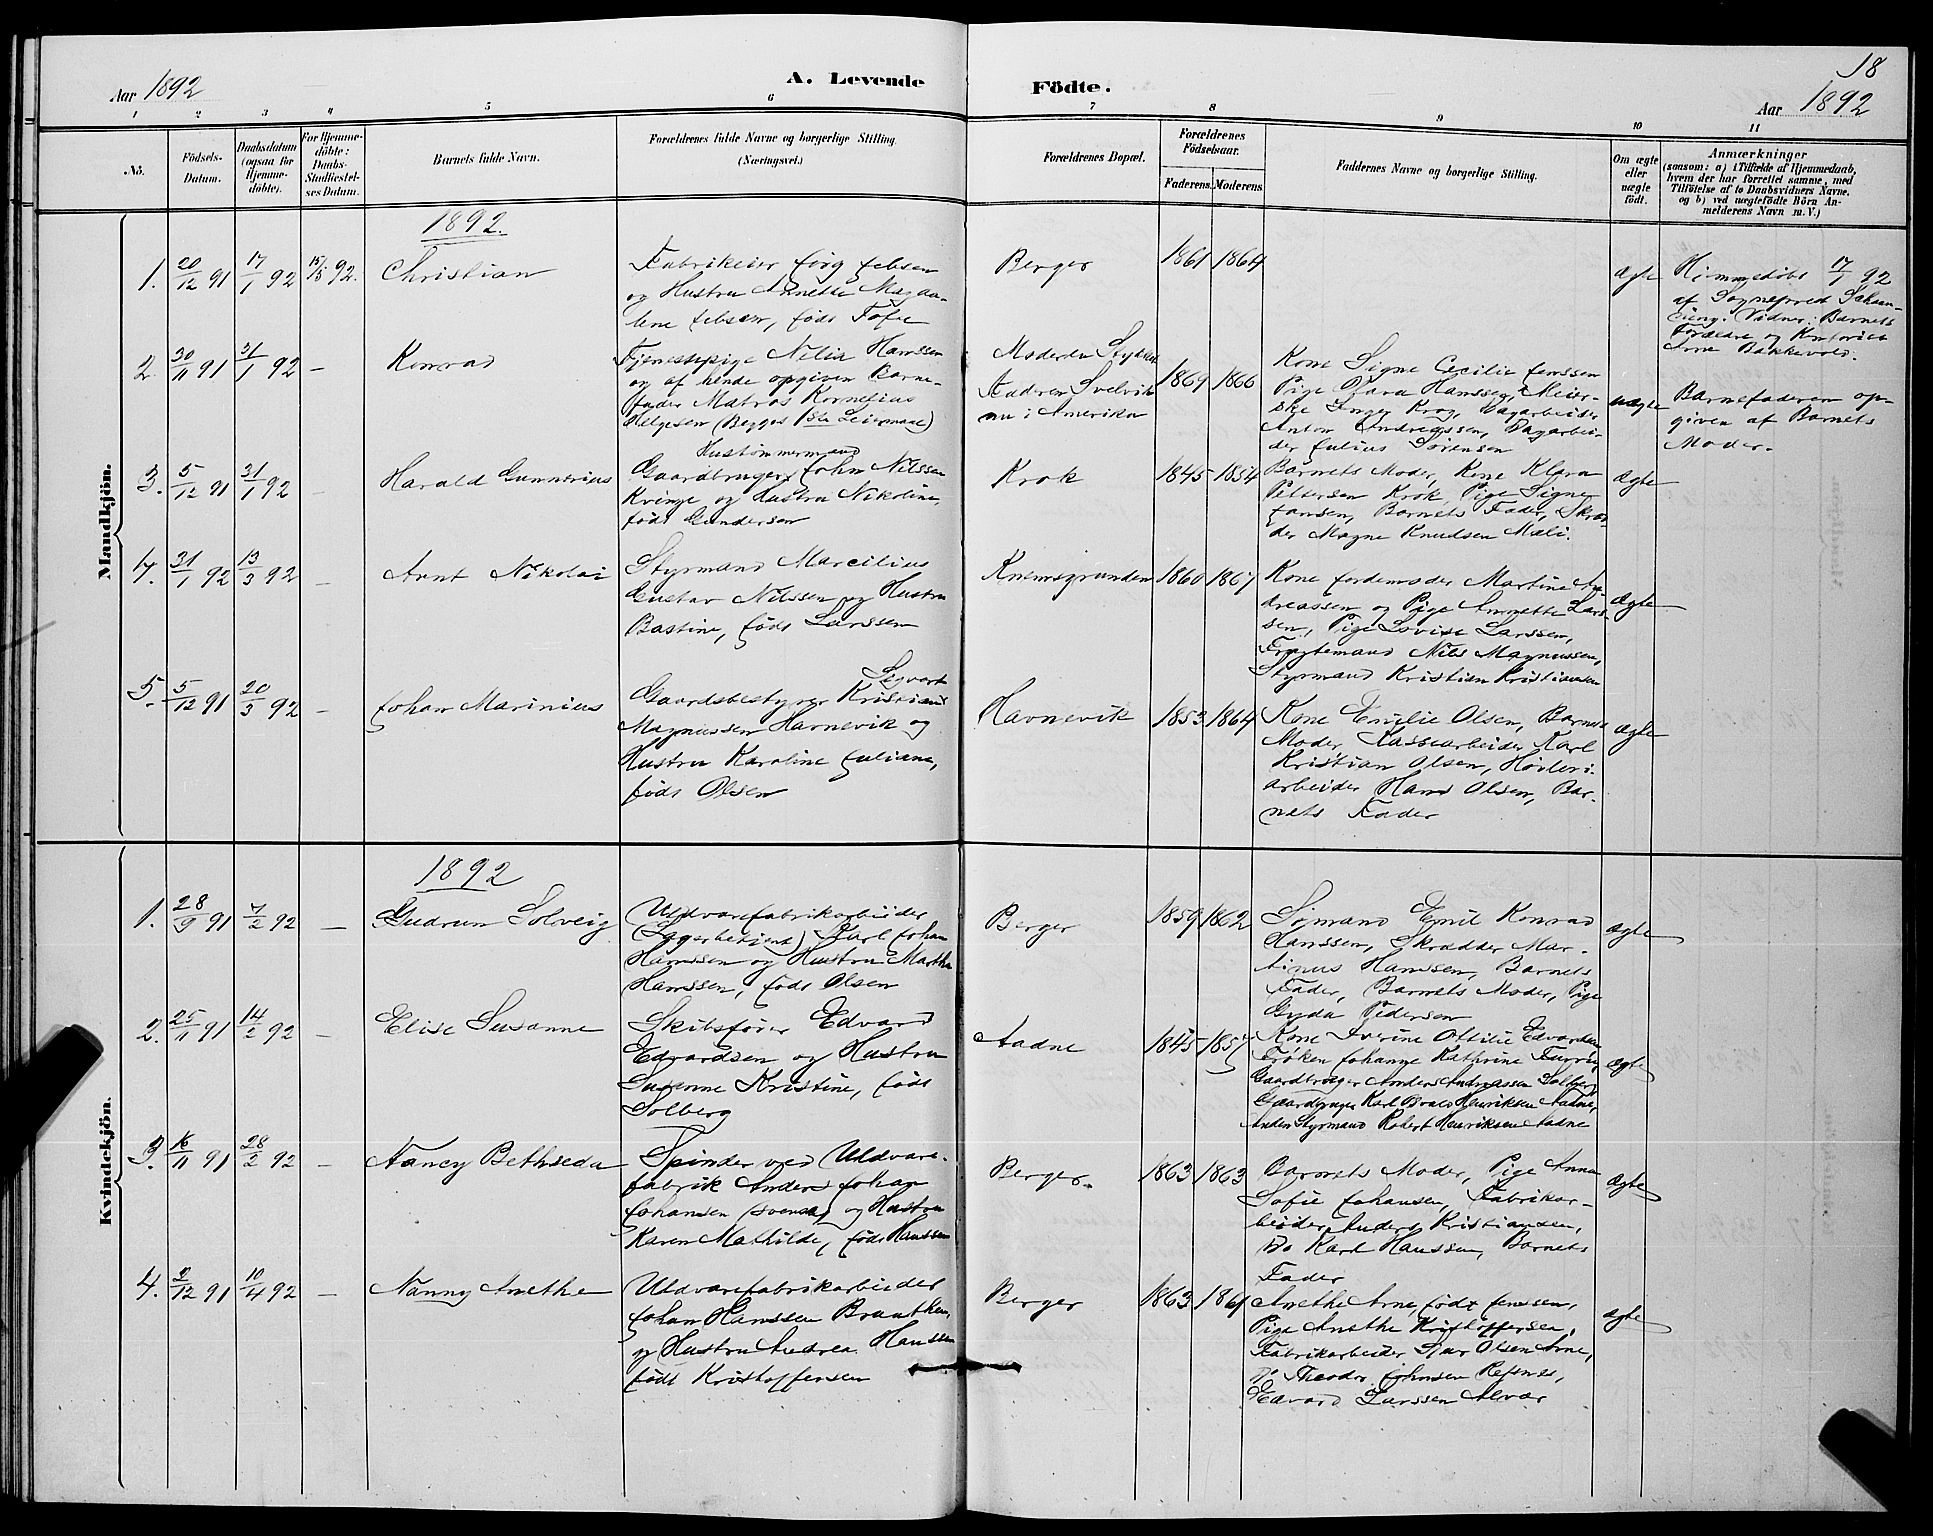 18
Aar 1892
A. Levende
Födte.
Aar 1892
1 2 3 4 5 6 7 8 9 10 11
No.
Födsels-
Datum.
Daabsdatum
(ogsaa för
Hjemme-
döbte).
For Hjemme-
döbte:
Daabs-
Stadfæstel-
ses Datum.
Barnets fulde Navn.
Forældrenes fulde Navne og borgerlige Stilling.
(Næringsvei.)
Forældrenes Bopæl.
Forældrenes
Födselsaar.
Faderens. Moderens.
Faddernes Navne og borgerlige Stilling.
Om ægte
eller
uægte
födt.
Anmærkninger
(saasom: a) i Tilfælde af Hjemmedaab,
hvem der har forrettet samme, med
Tilföielse af to Daabsvidners Navne,
og b) ved uægtefödte Börn An-
melderens Navn m. V.)
Mandkjön.
1892.
1. 20/12 91 17/1 92 15/5 92. Christian
Fabrikeier Jörg Jebsen
og Hustru Annette Magda-
lene Jebsen, født Tofte
Berger
1861 1864
ægte
Hjemmedøbt 17/1 92
af Sogneprest
Vidner: Barnets
Forældre og Kontorist
Arne Bakkevold.
2. 30/11 91 31/1 92 - Konrad
Tjenestepige Nilia Hanssen
og af hende opgiven Barne-
fader Matros Kornelius
Helgesen (Begges 1ste Leiermaal)
Moderen
Faderen Svelvik
nu i Amerika
1869 1866
Kone Signe Cecilie Jenssen
Pige Klara Hanssen, Meier-
ske Inger Krog, Dagarbeider
Anton Andreassen, Dagarbei-
der Julius Sørensen
uægte
Barnefaderen op-
given af Barnets
Moder.
3. 5/12 91 31/1 92 - Harald Gunnerius
Hustømmermand
Gaardbruger John Nilssen
Kvinge og Hustru Nikoline,
født Gundersen
Krok
1845 1854
Barnets Moder, Kone Klara
Pettersen Krok, Pige Signe
Jansen, Barnets Fader, Skræd-
der Magne Knudsen Mæli.
ægte
4. 31/1 92 13/3 92 - Arnt Nikolai
Styrmand Marcilius
Gustav Nilssen og Hustru
Bastine, født Larssen
Knemsgrunden
1860 1867
Kone Jordemoder Martine An-
dreassen og Pige Annette Lars-
sen, Pige Lovise Larssen,
Fragtemand Nils Magnussen,
Styrmand Kristian Kristiansen
ægte
5. 5/12 91 20/3 92 - Johan Marinius
Sigvart
Gaardsbestyrer Kristian
Magnussen Havnevik og
Hustru Karoline Juliane,
født Olsen
Havnevik
1853 1864
Kone Emilie Olsen, Barnets
Moder, Kassearbeider Karl
Kristian Olsen, Høvleri-
arbeider Hans Olsen, Bar-
nets Fader
ægte
Kvindekjön.
1892
1. 28/9 91 7/2 92 - Gudrun Solveig
Uldvarefabrikarbeider
(Lagerbetjent) Karl Johan
Hanssen og Hustru Martha
Hanssen, født Olsen
Berger
1859 1862
Sømand Emil Konrad
Hanssen, Skrædder Mar-
tinus Hanssen, Barnets
Fader, Barnets Moder, Pige
Gyda Pedersen
ægte
2. 25/11 91 14/2 92 - Elise Susanne
Skibsfører Edvard
Edvardsen og Hustru
Susanne Kristine, født
Solberg
Aadne
1845 1857
Kone Ottilie Edvardsen
Frøken Johanne Kathrine
Gaardbruger Anders Andreassen Solberg
Gaardbruger Karl Henriksen Aadne,
Anden Styrmand Robert Henriksen Aadne
ægte
3. 16/11 91 28/2 92 - Nancy Bethseda
Spinder ved Uldvare-
fabrik Anders Johan
Johansen (svensk) og Hustru
Karen Mathilde, født Hanssen
Berger.
1863 1863
Barnets Moder, Pige Anna
Sofie Johansen, Fabrikar-
beider Anders Kristiansen,
Do Karl Hanssen, Barnets
Fader
ægte
4. 2/12 91 10/4 92 - Nanny Anethe
Uldvarefabrikarbeider
Johan Hanssen Braathen,
og Hustru Andrea Hanssen
født Kristoffersen
Berger
1863 1861
Anethe Arne, født Jenssen,
Pige Anethe Kristoffersen,
Fabrikarbeider Olsen Arne,
Do Theodor Johnsen Refsnes,
Edvard Larssen
ægte